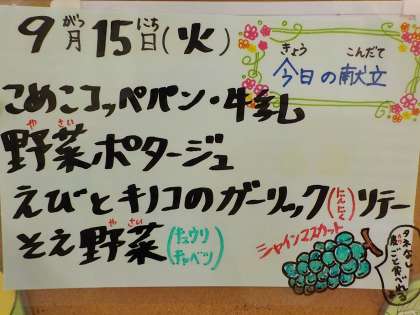 9月15日(火)
がつ にち
きょう こんだて
今日の献立
こめこコッペパン・牛乳
やさい
野菜ポタージュ
えびとキノコのガーリック(にんにく)ソテー
やさい
そえ野菜(キュウリ キャベツ)
シャインマスカット
タネなし
皮ごと食べれる